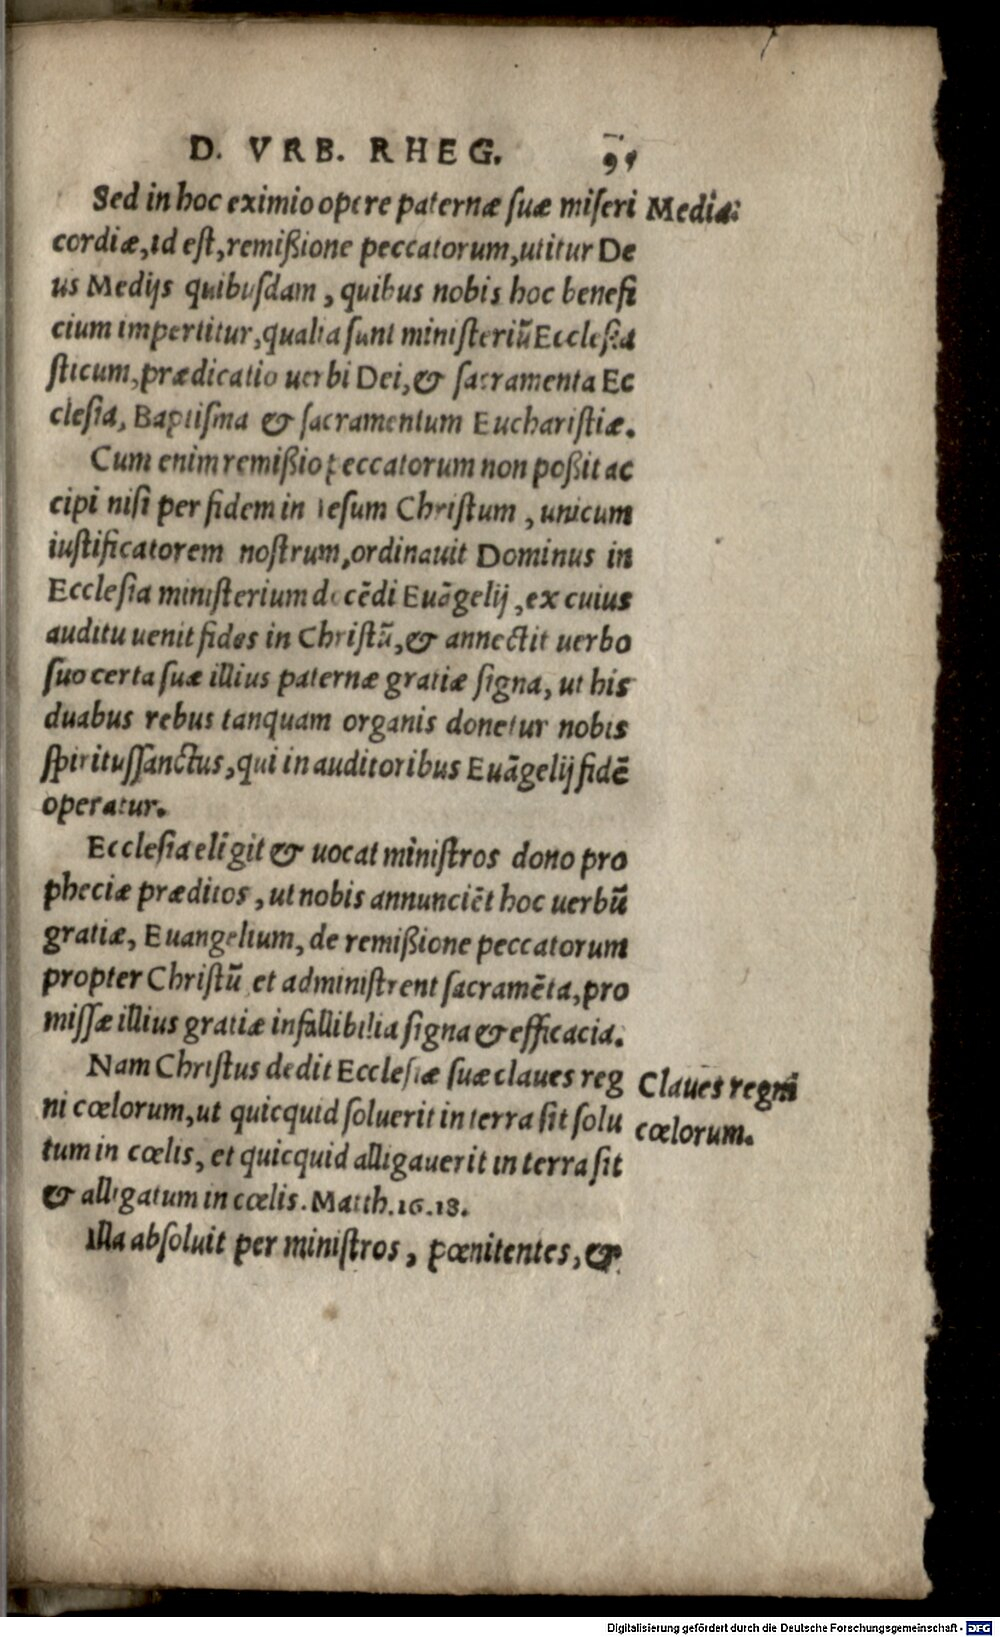 D. VRB. RHEG. 95
Sed in hoc eximio opere paternæ suæ miseri
Media:
cordiæ, id est, remißione peccatorum, utitur De
us Medijs quibusdam, quibus nobis hoc benefi
cium impertitur, qualia sunt ministeriũ Ecclesia
sticum, prædicatio uerbi Dei, & sacramenta Ec
clesia, Baptisma & sacramentum Eucharistiæ.
Cum enim remißio peccatorum non poßit ac
cipi nisi per fidem in Iesum Christum, unicum
iustificatorem nostrum, ordinauit Dominus in
Ecclesia ministerium docẽdi Euãgelij, ex cuius
auditu uenit fides in Christũ, & annectit uerbo
suo certa suæ illius paternæ gratiæ signa, ut his
duabus rebus tanquam organis donetur nobis
spiritussanctus, qui in auditoribus Euãgelij fidẽ
operatur.
Ecclesia eligit & uocat ministros dono pro
pheciæ præditos, ut nobis annunciẽt hoc uerbũ
gratiæ, Euangelium, de remißione peccatorum
propter Christũ et administrent sacramẽta, pro
missæ illius gratiæ infallibilia signa & efficacia.
Nam Christus dedit Ecclesiæ suæ claues reg
Claues regni
ni cœlorum, ut quicquid soluerit in terra sit solu
cœlorum.
tum in cœlis, et quicquid alligauerit in terra sit
& alligatum in cœlis. Matth. 16. 18.
Illa absoluit per ministros, pœnitentes, &
Digitalisierung gefördert durch die Deutsche Forschungsgemeinschaft - DFG